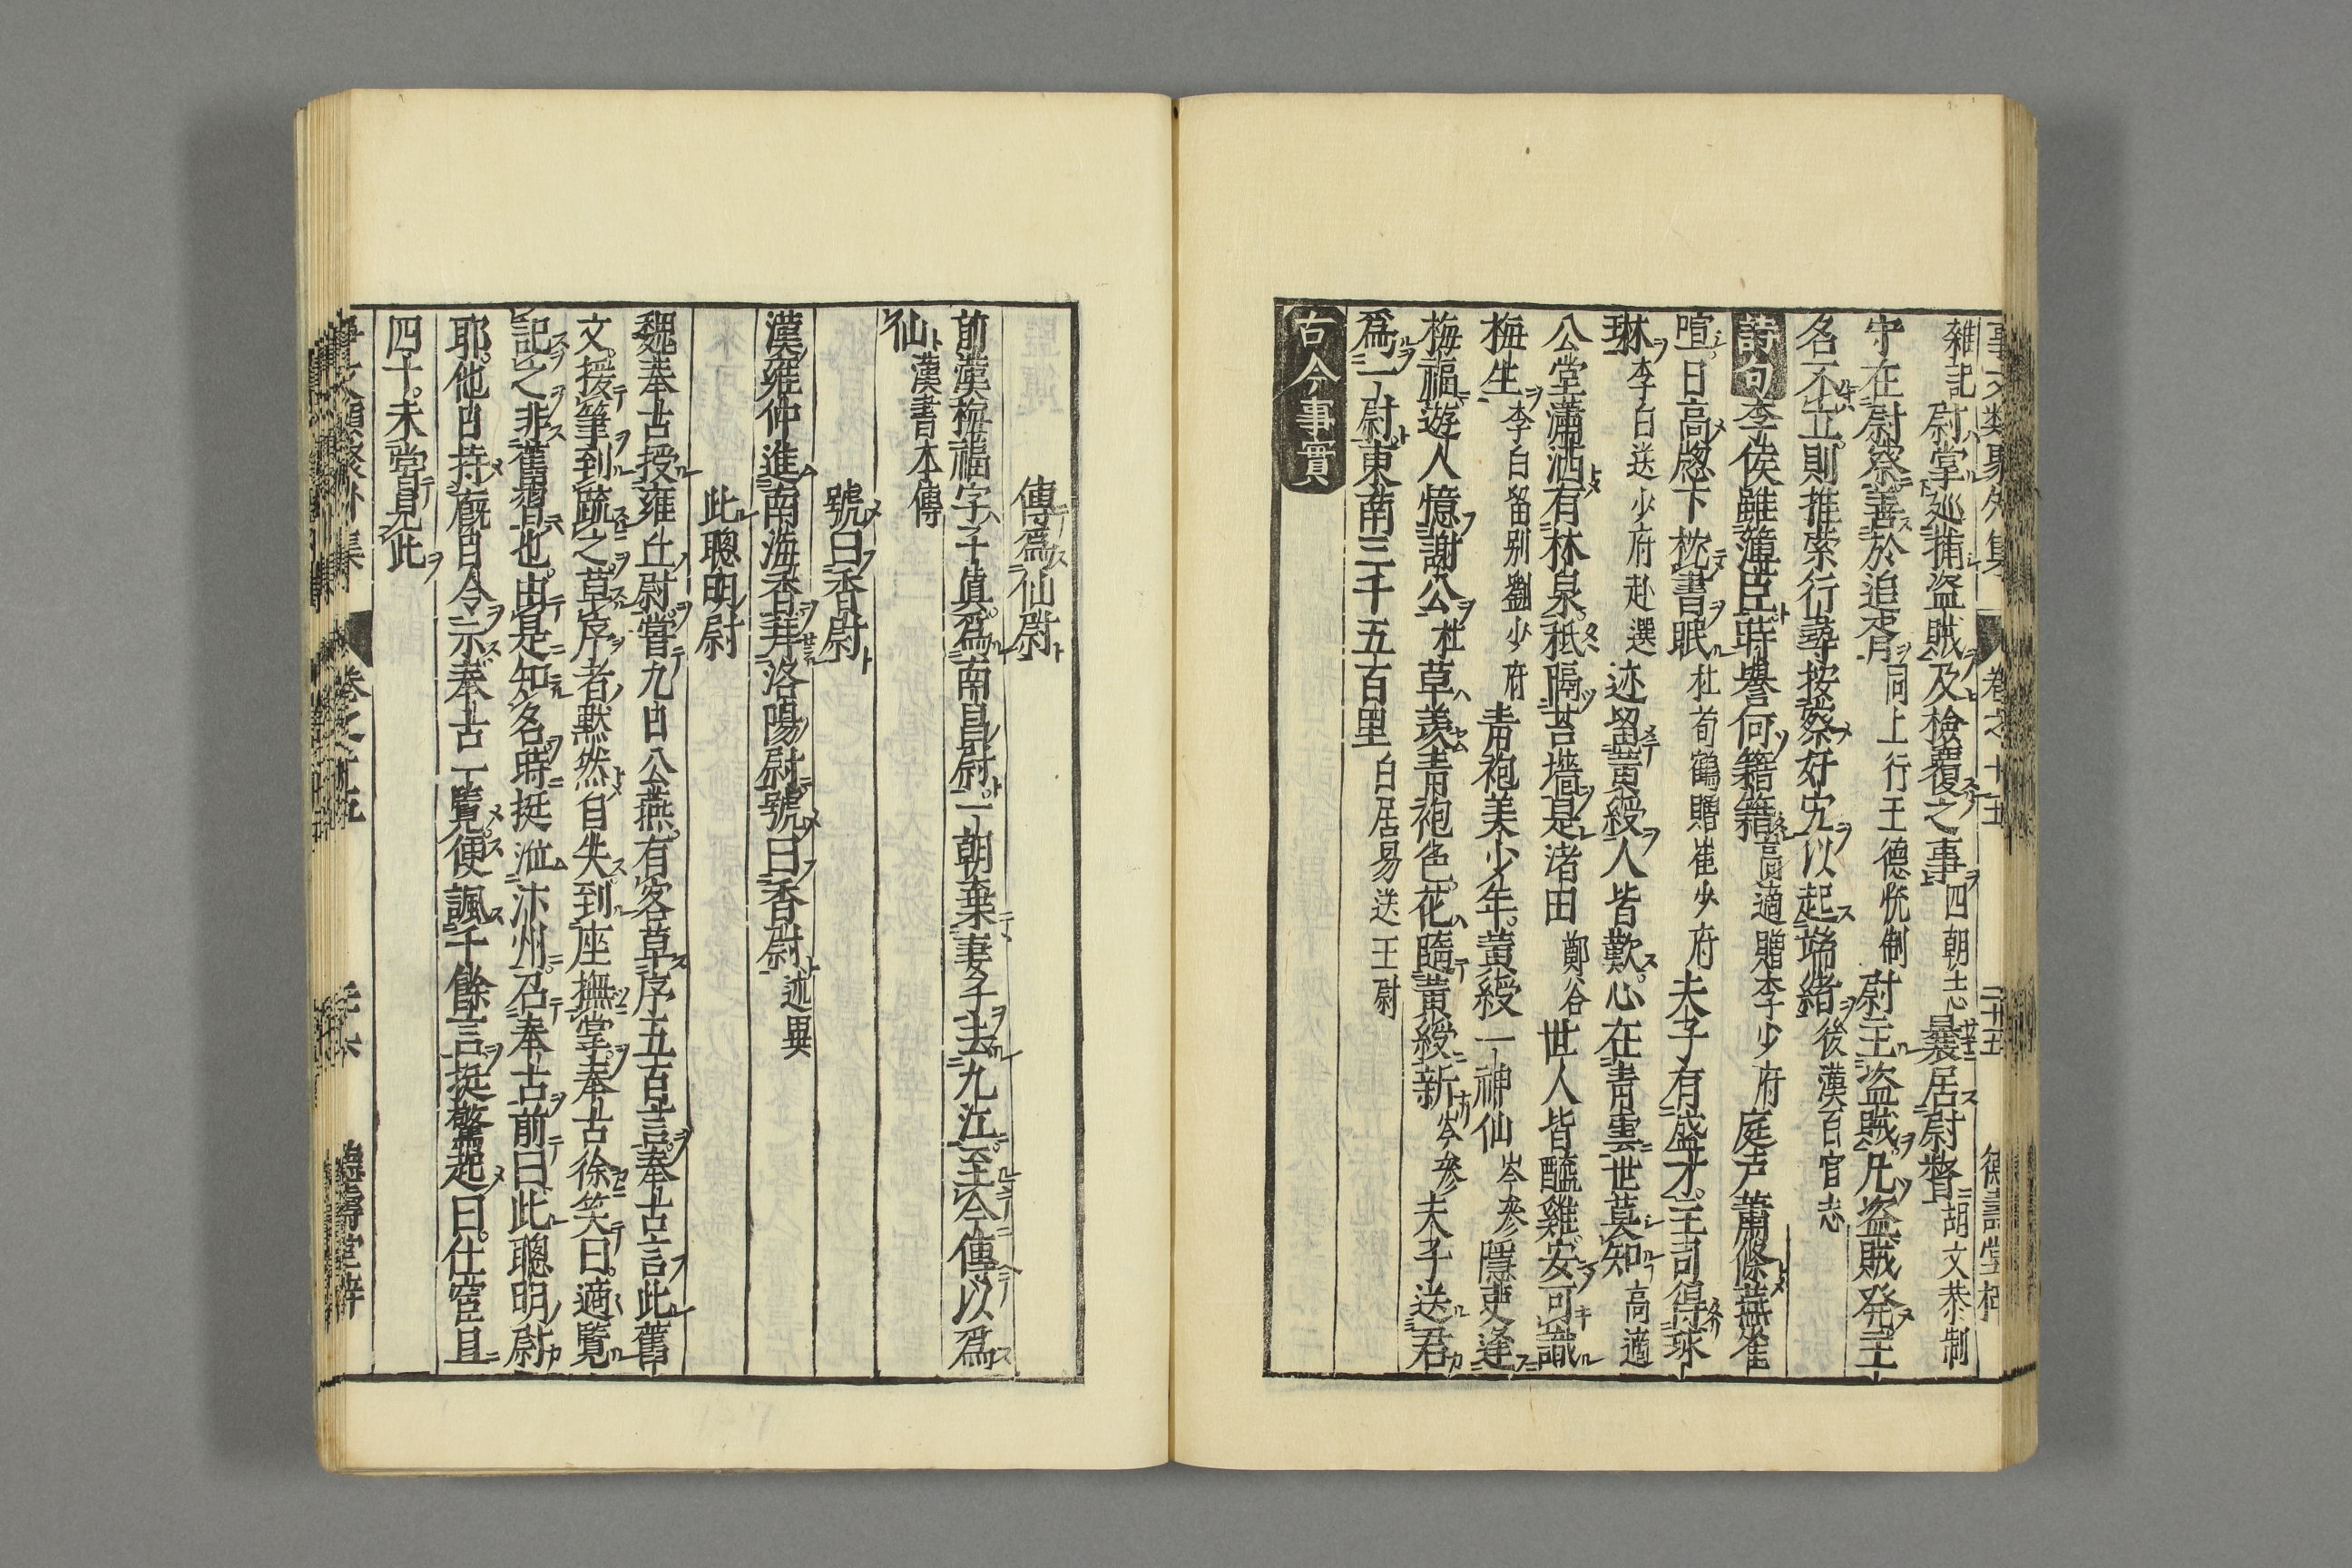 事文類聚外集 卷之十五 二十五 德壽堂梓
雜記 尉掌廵捕盗賊及檢覆之事 四朝志 曩居尉督 胡文恭制
守在尉察善於追胥 同上行王德恱制 尉主盗賊凡盗賊発主
名不立則推索行尋按察奸宄以起端緒 後漢百官志
詩句 李侯雖薄臣時譽何籍籍 高適贈李少府 庭户蕭條燕雀
喧日高窓下枕書眠 杜荀鶴贈崔少府 夫子有盛才主司得球
琳 李白送少府赴選 迹留黃綬人皆歎心在青雲世莫知 高適
公堂蕭洒有林泉秪隔苔墻是渚田 鄭谷 世人皆醯雞安可識
梅生 李白留别劉少府 青袍美少年黃綬一神仙 岑參 隱吏逢
梅福遊人憶謝公 杜 草羡青袍色花隨黃綬新 岑參 夫子送君
爲一尉東南三千五百里 白居易送王尉
古今事實
傳爲仙尉
前漢梅福字子真爲南昌尉一朝棄妻子去九江至今傳以爲
仙 漢書本傳
號曰香尉
漢雍仲進南海香拜洛陽尉號曰香尉 述異
此聰明尉
魏奉古授雍丘尉嘗九日公燕有客草序五百言奉古言此舊
文援筆到䟽之草序者黙然自失到座撫掌奉古徐笑曰適覽
記之非舊習也由是知名時挺涖汴州召奉古前曰此聰明尉
耶他日持廐目令示奉古一覽便諷千餘言挺驚起曰仕宦且
四十未嘗見此
事文類聚外集 卷之十五 德壽堂梓